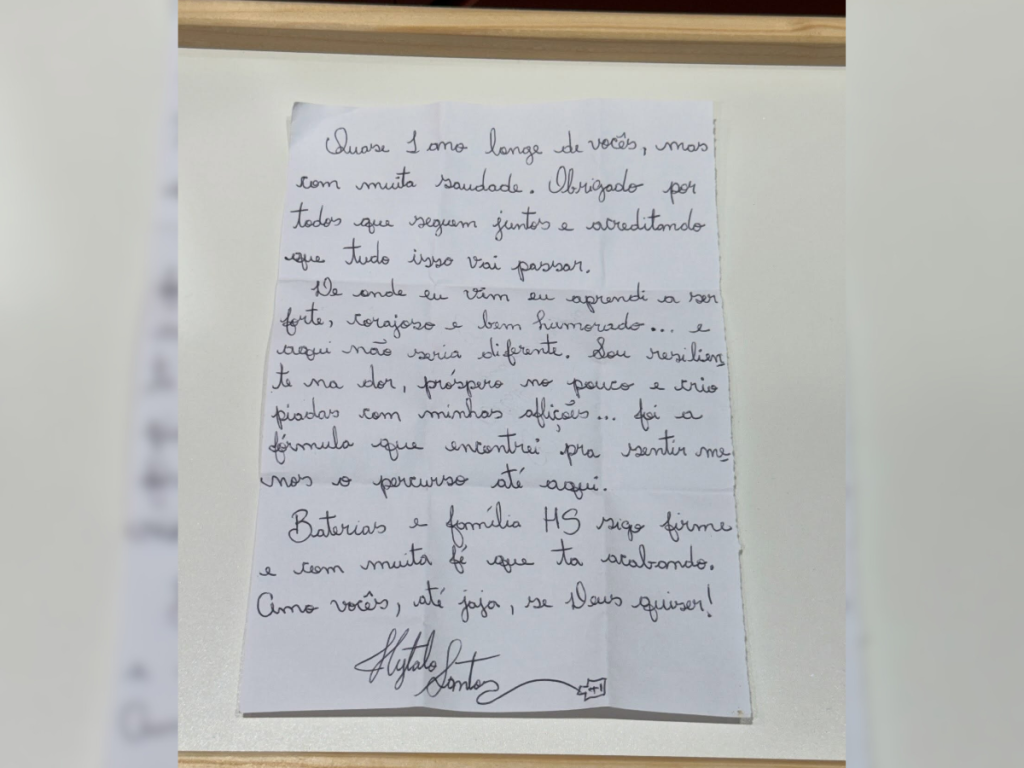 Quase 1 ano longe de vocês, mas
com muita saudade. Obrigado por
todos que seguem juntos e acreditando
que tudo isso vai passar.
De onde eu vim eu aprendi a ser
forte, corajoso e bem humorado... e
aqui não seria diferente. Sou resilien
te na dor, próspero no pouco e crio
piadas com minhas aflições... foi a
fórmula que encontrei pra sentir me
nos o percurso até aqui.
Baterias e família HS sigo firme
e com muita fé que ta acabando.
Amo vocês, até jaja, se Deus quiser!
Hytalo
Santos